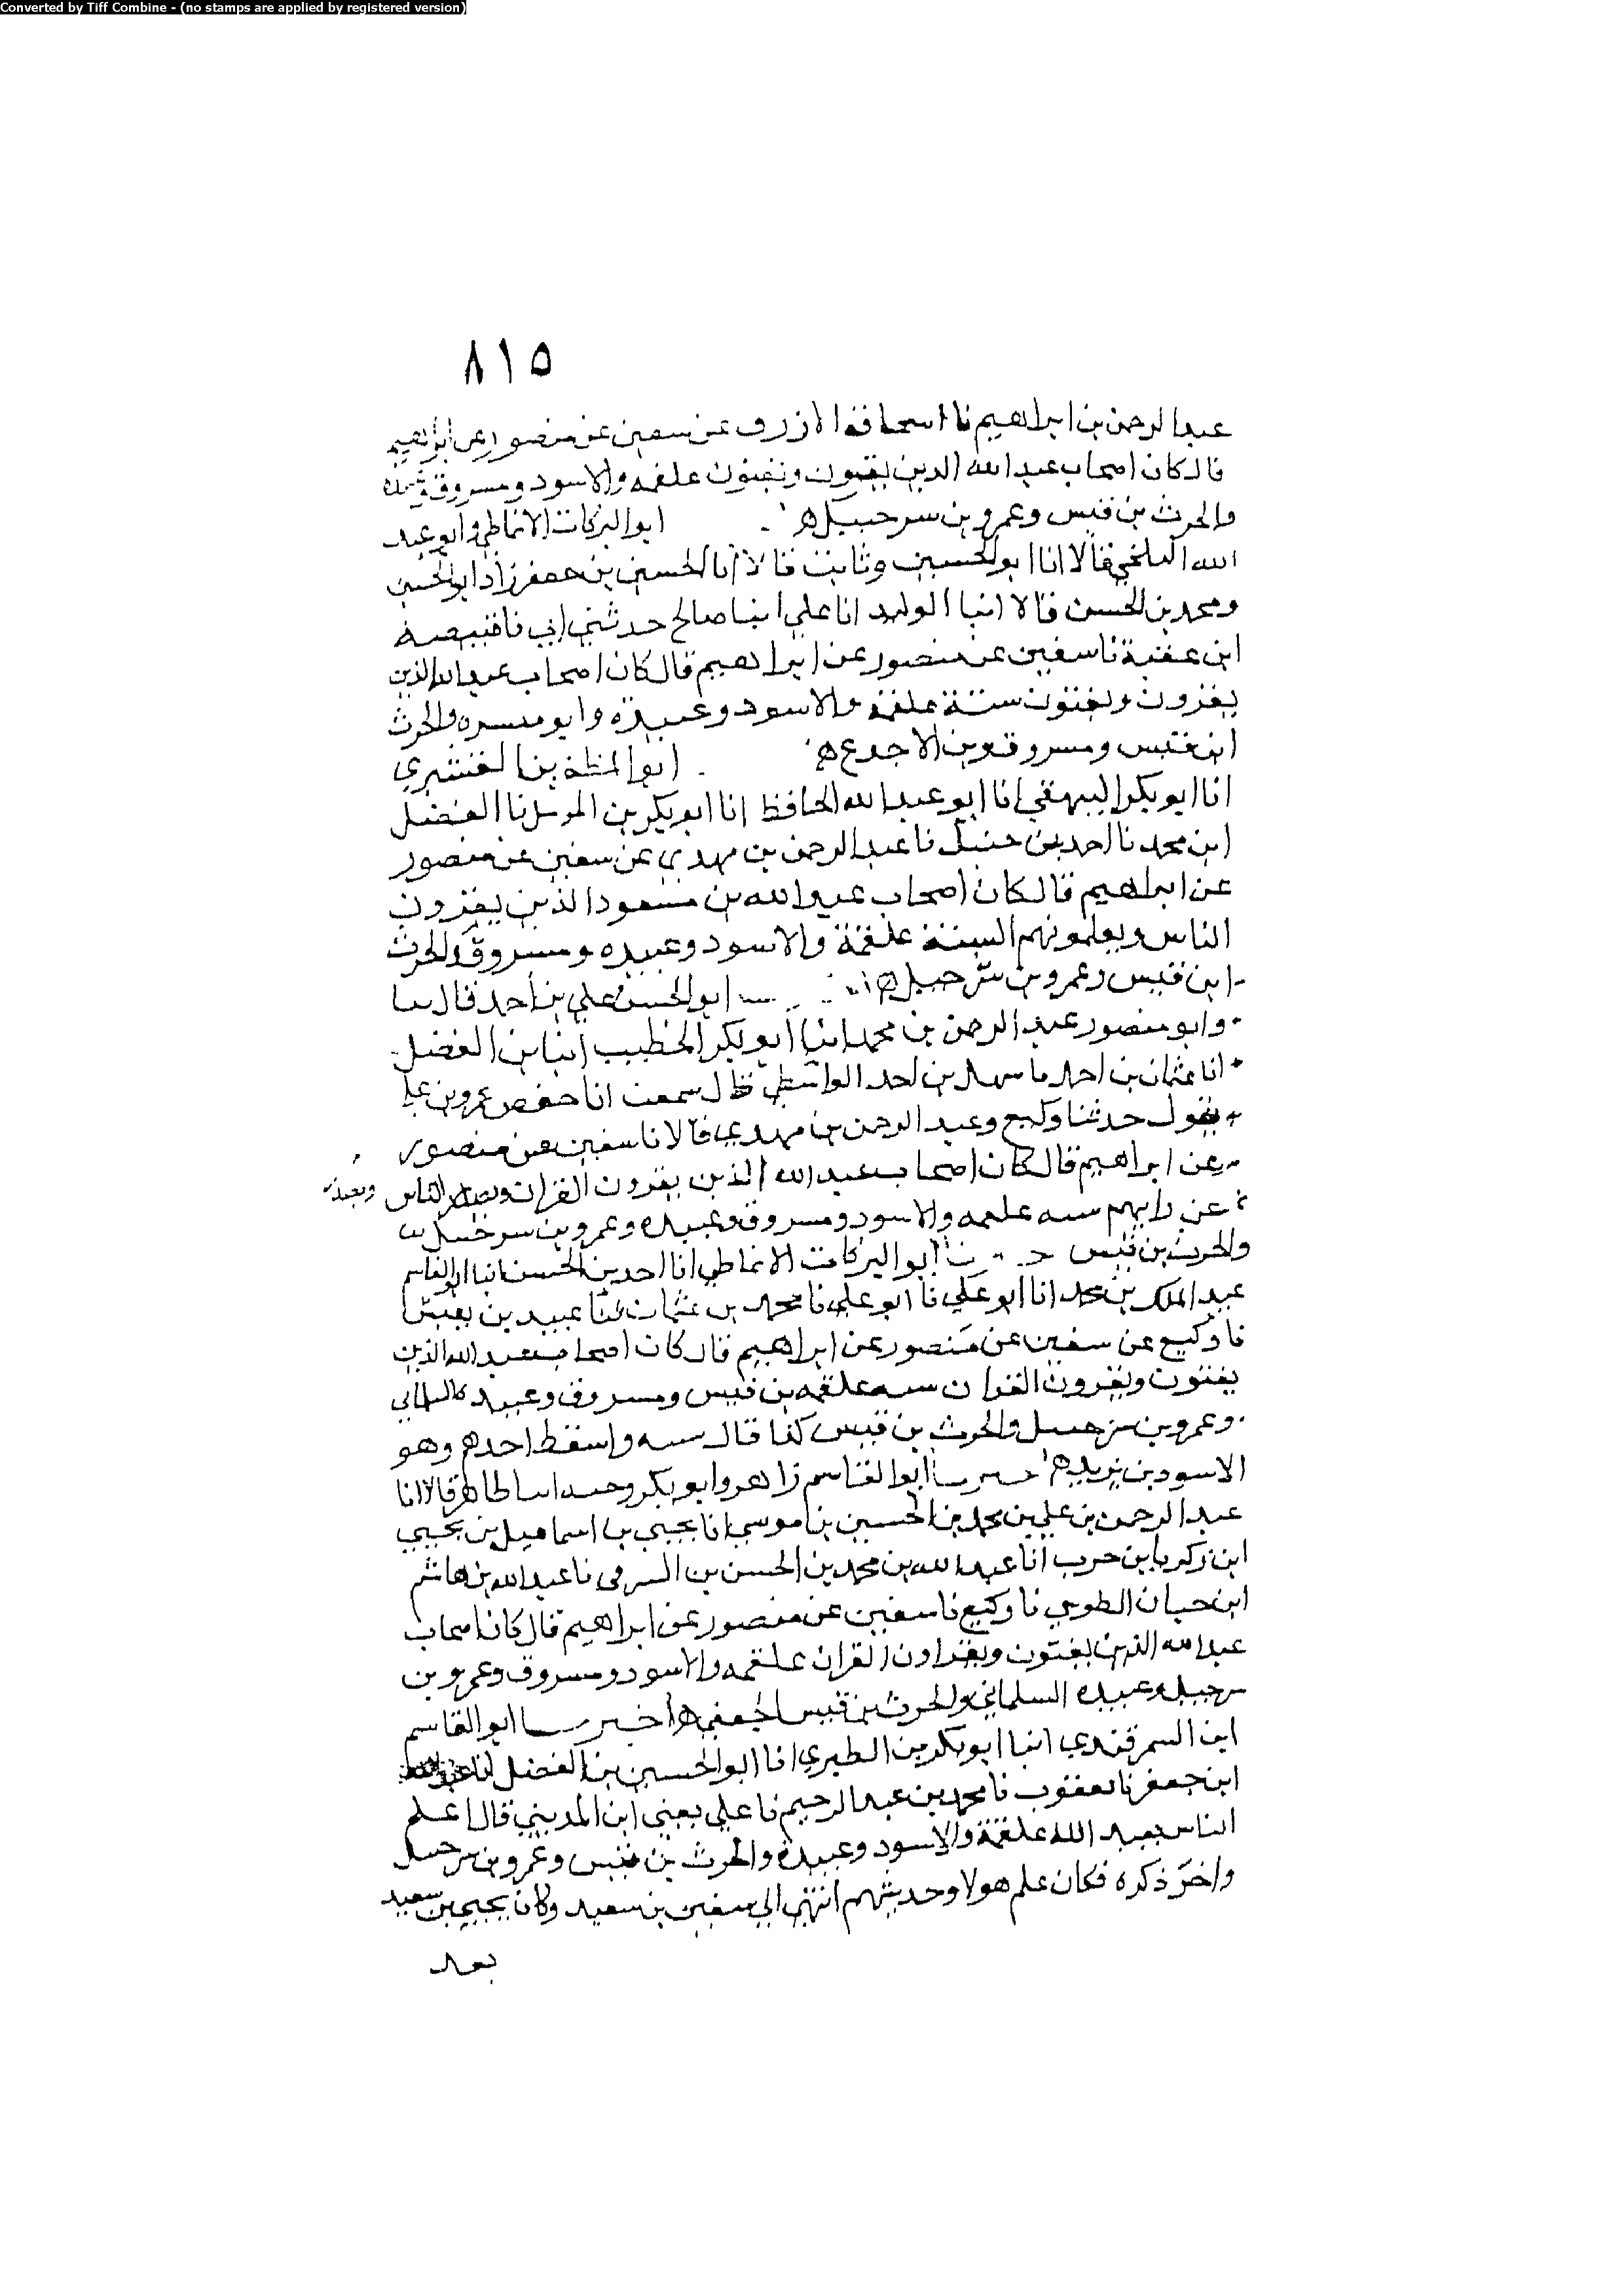 Converted by Tiff Combine - (no stamps are applied by registered version)
٨١٥
عبد الرحمن بن ابراهيم نا اسحاق الازرق عن سفين عن منصور عن ابراهيم
قال كان اصحاب عبد الله الذين يقرون ويفتون علقمه والاسود ومسروق وعبيدة
والحرث بن قيس وعمرو بن سرحبيل ه ابو البركات الانماطي وابو عبد
الله البلخي قالا انا ابو الحسين وثابت قالا انا الحسين بن جعفر زاد ابو الحسين
ومحمد بن الحسن قالا انبا الوليد انا علي انبا صالح حدثني ابي نا قبيصة
ابن عقبة نا سفين عن منصور عن ابراهيم قال كان اصحاب عبد الله الذين
يقرون ويفتون ستة علقمة والاسود وعبيدة وابو ميسره والحرث
ابن قيس ومسروق بن الاجدع ه ابو المظفر بن القشيري
انا ابو بكر البيهقي انا ابو عبد الله الحافظ انا ابو بكر بن المومل نا الفضل
ابن محمد نا احمد بن حنبل نا عبد الرحمن بن مهدي عن سفين عن منصور
عن ابراهيم قال كان اصحاب عبد الله بن مسعود الذين يقرون
الناس ويعلمونهم السنة علقمة والاسود وعبيده ومسروق والحرث
ابن قيس وعمرو بن شرحبيل ه ابو الحسن علي بن احمد قال نا
وابو منصور عبد الرحمن بن محمد انبا ابو بكر الخطيب انبا بن الفضل
انا عثمان بن احمد نا سهل بن احمد الواسطي قال سمعت ابا حفص عمرو بن علي
يقول حدثنا وكيع وعبد الرحمن بن مهدي قالا نا سفين عن منصور
عن ابراهيم قال كان اصحاب عبد الله الذين يقرون القران ويصدر الناس
عن رايهم سته علقمه والاسود ومسروق وعبيده وعمرو بن سرحبيل
والحرث بن قيس ابو البركات الانماطي انا احمد بن الحسن انبا ابو القاسم
عبد الملك بن محمد انا ابو علي نا ابو علي نا محمد بن عثمان نا عبيد بن يعيش
نا وكيع عن سفين عن منصور عن ابراهيم قال كان اصحاب عبد الله الذين
يفتون ويقرون القران سته علقمه بن قيس ومسروق وعبيده السلماني
وعمرو بن سرحبيل والحرث بن قيس كذا قال سته واسقط احدهم وهو
الاسود بن يزيد ه ابو القاسم زاهر وابو بكر وجيه ابنا طاهر قالا انا
عبد الرحمن بن علي بن محمد بن الحسين بن موسى انا يحيى بن اسماعيل بن يحيى
ابن زكريا بن حرب انا عبد الله بن محمد بن الحسن بن الشرقي نا عبد الله بن هاشم
ابن حيان الطوسي نا وكيع نا سفين عن منصور عن ابراهيم قال كان اصحاب
عبد الله الذين يفتون ويقراون القران علقمه والاسود ومسروق وعمرو بن
سرحبيل وعبيده السلماني والحرث بن قيس الجعفي ه اخبرنا ابو القاسم
ابن السمرقندي انبا ابو بكر بن الطبري انا ابو الحسين بن الفضل انا عبد الله
ابن جعفر نا يعقوب نا محمد بن عبد الرحيم نا علي يعني ابن المديني قال اعلم
الناس بعبد الله علقمة والاسود وعبيدة والحرث بن قيس وعمرو بن سرحبيل
واخر ذكره فكان علم هولا وحديثهم انتهى الى سفين بن سعيد وكان يحيى بن سعيد
بعد